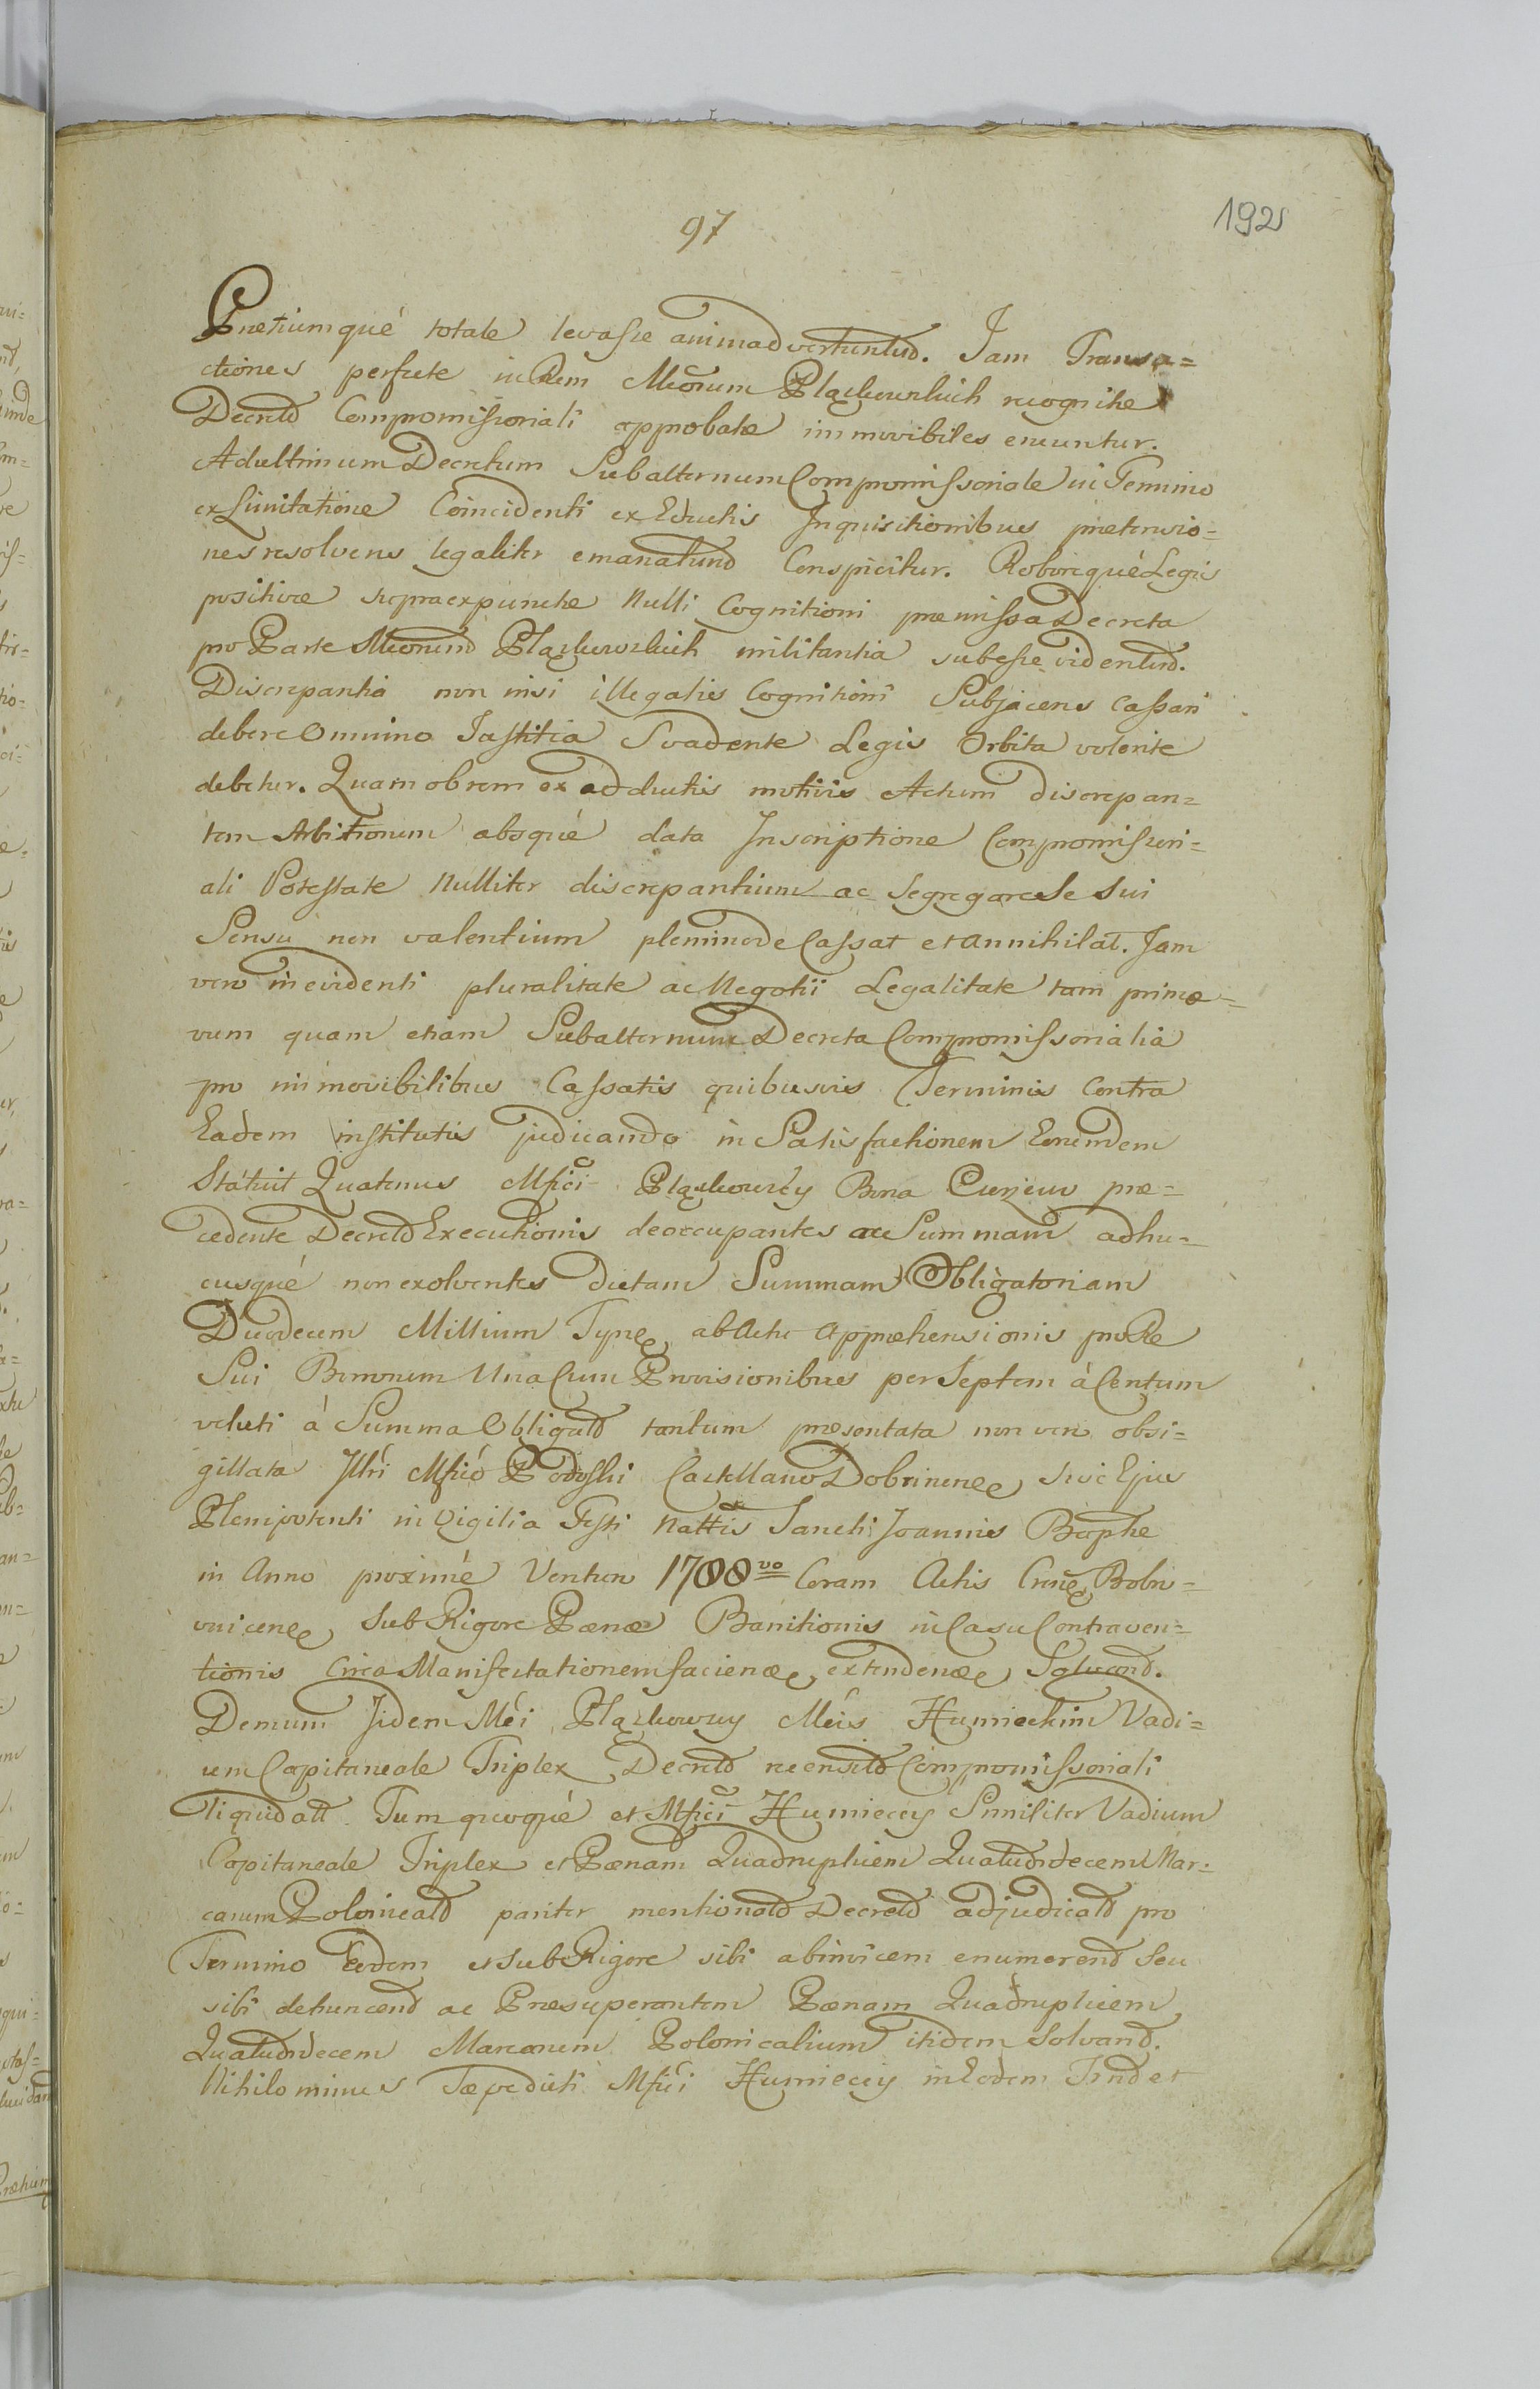 97
192
Pretiumqué totale levasse animadvertuntur. Jam Transa=
ctiones perfecte in Rem Mcorum Płaczkowskich recognitæ
Decreto Compromissoriali approbatæ immovibiles eveuntur.
Adultimum Decretum Subalternum Compromissoriale in Termino
ex Limitatione Coincidenti ex Eductis Inquisitionibus prætensio=
nes resolvens legaliter emanatum Conspicitur. Roboreque Legis
positivæ supraexpunctæ Nulli Cognitioni præmissa Decreta
pro Parte Mcorum militantia subesse videntur.
Discrepantia non nisi illegalis Cognitioni Subjacens Cassari
debere Omnino Justitia Svadente Legis Orbita volente
debetur. Quamobrem ex adductis motivis Actum discrepan=
tem Arbitrorum absqué data Inscriptione Compromissori=
ali Potestate Nulliter discrepantium ac Segregare Se Sui
Sensu non valentium plenimode Cassat et annihilat. Jam
vero in evidenti pluralitate ac Negotii Legalitate tam primæ=
vum quam etiam Subalternum Decreta Compromissorialia
pro immovibilibus Cassatis quibusvis Terminis Contra
Eadem institutis judicando in Satisfactionem Eorundem
Statuit Quatenus Mfici Bona præ=
cedente Decreto Executionis deoccupantes ac Summam adhu=
cusqué non exolventes dictam Summam Obligatoriam
Duodecem Millium Tynf. ab Actu Apprehensionis pro Re
Sui Bonorum Una Cum Provisionibus per Septem à Centum
veluti à Summa Obligato tantum præsentata non vero obsi=
gillata Illri Mfico Podoski Castellano Dobrinen. sive Ejus
Plenipotenti in Vigilia Festi Nattis Sancti Joannis Baptæ
in Anno proximé Venturo 1788vo Coram Actis Bobro=
vnicen. Sub Rigore Pænæ Banitionis in Casu Contraven=
tionis Circa Manifestationem faciend. extendend. Solvend.
Demum Jidem Mci Mcis Humieckim Vadi=
um Capitaneale Triplex Decreto recensito Compromissoriali
liquidatt. Tum quoqué et Mfici Humieccy Similiter Vadium
Capitaneale Triplex et Pænam Quadruplicem Quatuordecem Mar=
carum Polonicald pariter mentionato Decreto adjudicatd pro
Termino Eodem et sub Rigore sibi abinvicem enumerend Seu
sibi detruncend ac Præsuperantem Pænam Quadruplicem
Quatuordecem Marcarum Polonicalium itidem Solvand.
Nihilominus Sæpedicti Mfici Humieccy in Eodem Trno et